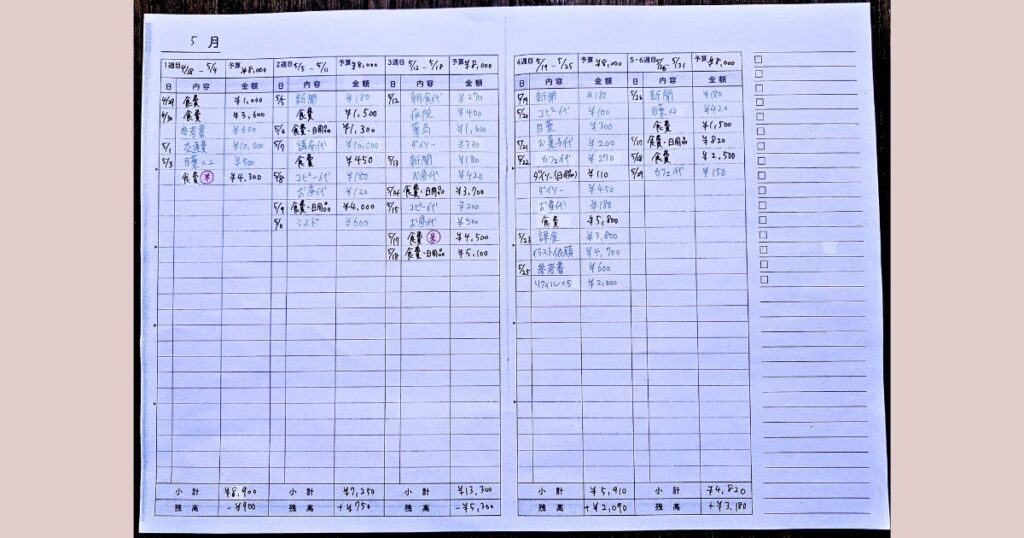 5 月
1週目 4/28 - 5/4 予算 ¥8,000
日 内容 金額
4/29 食費 ¥1,000
4/30 食費 ¥3,600
参考書 ¥600
5/1 交通費 ¥10,000
5/3 目薬×2 ¥500
食費 米 ¥4,300
小計 ¥8,900
残高 -¥900
2週目 5/5 - 5/11 予算 ¥8,000
日 内容 金額
5/5 新聞 ¥180
食費 ¥1,500
5/6 食費・日用品 ¥1,300
講座代 ¥10,000
食費 ¥450
5/8 コピー代 ¥180
お昼代 ¥120
5/9 食費・日用品 ¥4,000
ミスド ¥600
小計 ¥7,250
残高 +¥750
3週目 5/12 - 5/18 予算 ¥8,000
日 内容 金額
5/12 朝食代 ¥270
病院 ¥400
薬局
ダイソー ¥330
5/13 新聞 ¥180
お昼代 ¥420
5/14 食費・日用品 ¥3,700
5/15 コピー代 ¥200
お昼代 ¥500
食費 米 ¥4,500
5/18 食費・日用品 ¥5,100
小計 ¥13,300
残高 -¥5,300
4週目 5/19 - 5/25 予算 ¥8,000
日 内容 金額
5/19 新聞 ¥180
5/20 コピー代 ¥100
目薬 ¥300
5/21 お菓子代 ¥200
5/22 カフェ代 ¥270
ダイソー(日用品) ¥110
ダイソー ¥450
お昼代 ¥180
食費 ¥5,800
5/23 課金 ¥3,800
イラスト依頼 ¥4,700
5/25 参考書 ¥600
リフィル×5 ¥2,000
小計 ¥5,910
残高 +¥2,090
5・6週目 5/26 - 5/31 予算 ¥8,000
日 内容 金額
5/26 新聞 ¥180
目薬×2 ¥420
食費 ¥1,500
5/27 食費・日用品 ¥820
5/28 食費 ¥2,500
5/29 カフェ代 ¥150
小計 ¥4,820
残高 +¥3,180